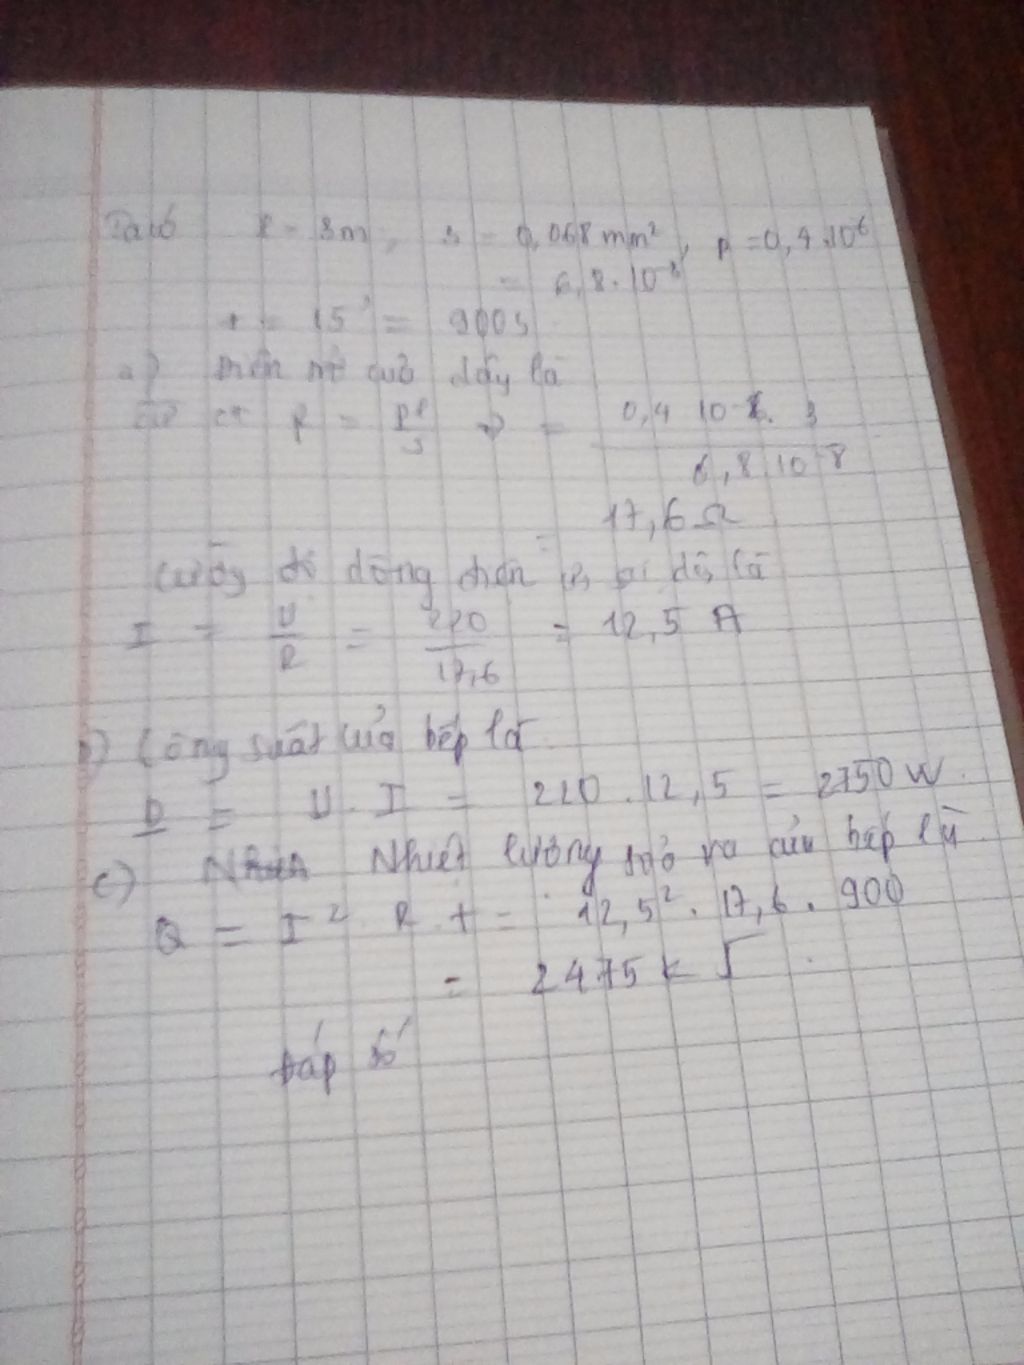 Ta có l = 3m, s = 0,068 mm², ρ = 0,4.10⁻⁶
= 6,8.10⁻⁸
t = 15' = 900s
a) Điện trở của dây là
R = ρl/s = 0,4 10⁻⁶. 3 / 6,8.10⁻⁸
= 17,6 Ω
Cường độ dòng điện là
I = U/R = 220/17,6 = 12,5 A
b) Công suất của bếp là
P = U.I = 220.12,5 = 2750 W.
c) Nhiệt lượng toả ra của bếp là
Q = I² R.t = 12,5². 17,6. 900
= 2475 kJ
Đáp số